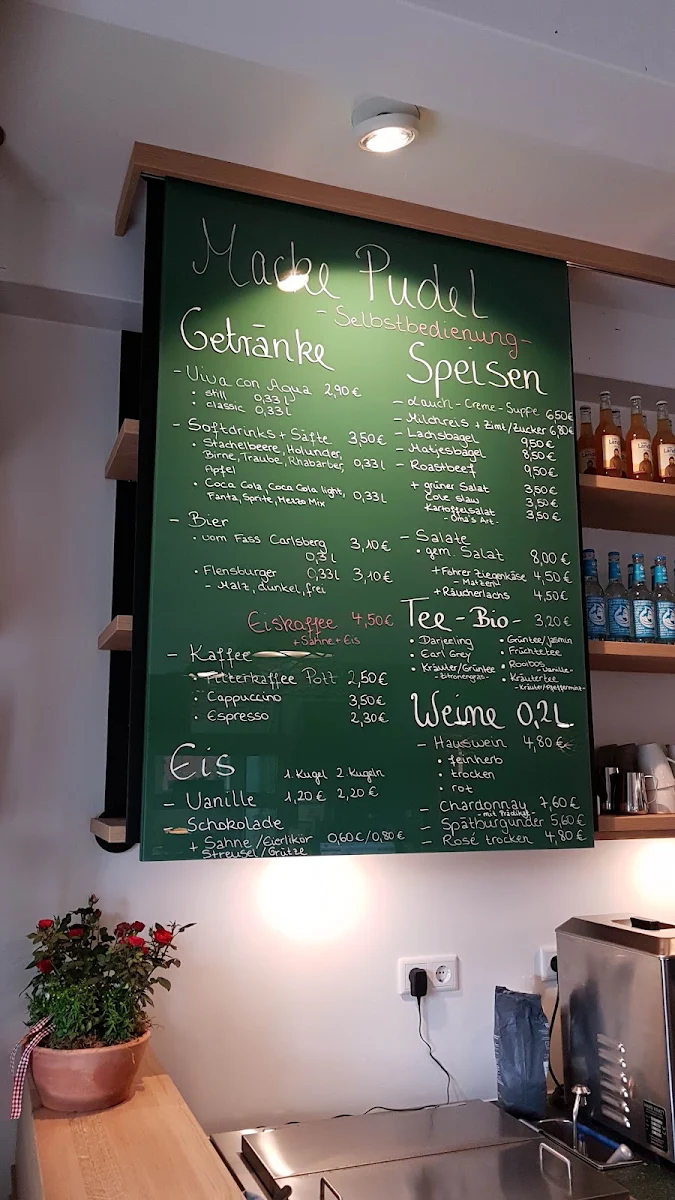 Macke Pudel
- Selbstbedienung -
Getränke
- Viva con Agua 2,90 €
• still 0,33 l
• classic 0,33 l
- Softdrinks + Säfte 3,50 €
• Stachelbeere, Holunder,
Birne, Traube, Rhabarber, 0,33 l
Apfel
• Coca Cola, Coca Cola light, 0,33 l
Fanta, Sprite, Mezzo Mix
- Bier
• vom Fass Carlsberg 3,10 €
0,3 l
• Flensburger 0,33 l 3,10 €
- Malz, dunkel, frei
Eiskaffee 4,50 €
+ Sahne + Eis
- Kaffee
• Filterkaffee Pott 2,50 €
• Cappuccino 3,50 €
• Espresso 2,30 €
Eis
1. Kugel 2. Kugeln
- Vanille 1,20 € 2,20 €
- Schokolade
+ Sahne / Eierlikör 0,60 € / 0,80 €
Streusel / Grütze
Speisen
- Lauch-Creme-Suppe 6,50 €
- Milchreis + Zimt/Zucker 6,80 €
- Lachsbagel 9,50 €
- Matjesbagel 8,50 €
- Roastbeef 9,50 €
+ grüner Salat 3,50 €
Cole slaw 3,50 €
Kartoffelsalat 3,50 €
- Oma's Art -
- Salate
• gem. Salat 8,00 €
+ Föhrer Ziegenkäse 4,50 €
+ Räucherlachs 4,50 €
Tee - Bio - 3,20 €
• Darjeeling
• Earl Grey
• Kräuter/Grüntee
- Zitronengras -
• Grüntee/Jasmin
• Früchtetee
• Rooibos
- Vanille -
• Kräutertee
- Kräuter/Pfefferminz -
Weine 0,2 L
- Hauswein 4,80 €
• feinherb
• trocken
• rot
- Chardonnay 7,60 €
- mit Prädikat -
- Spätburgunder 5,60 €
- Rosé trocken 4,80 €